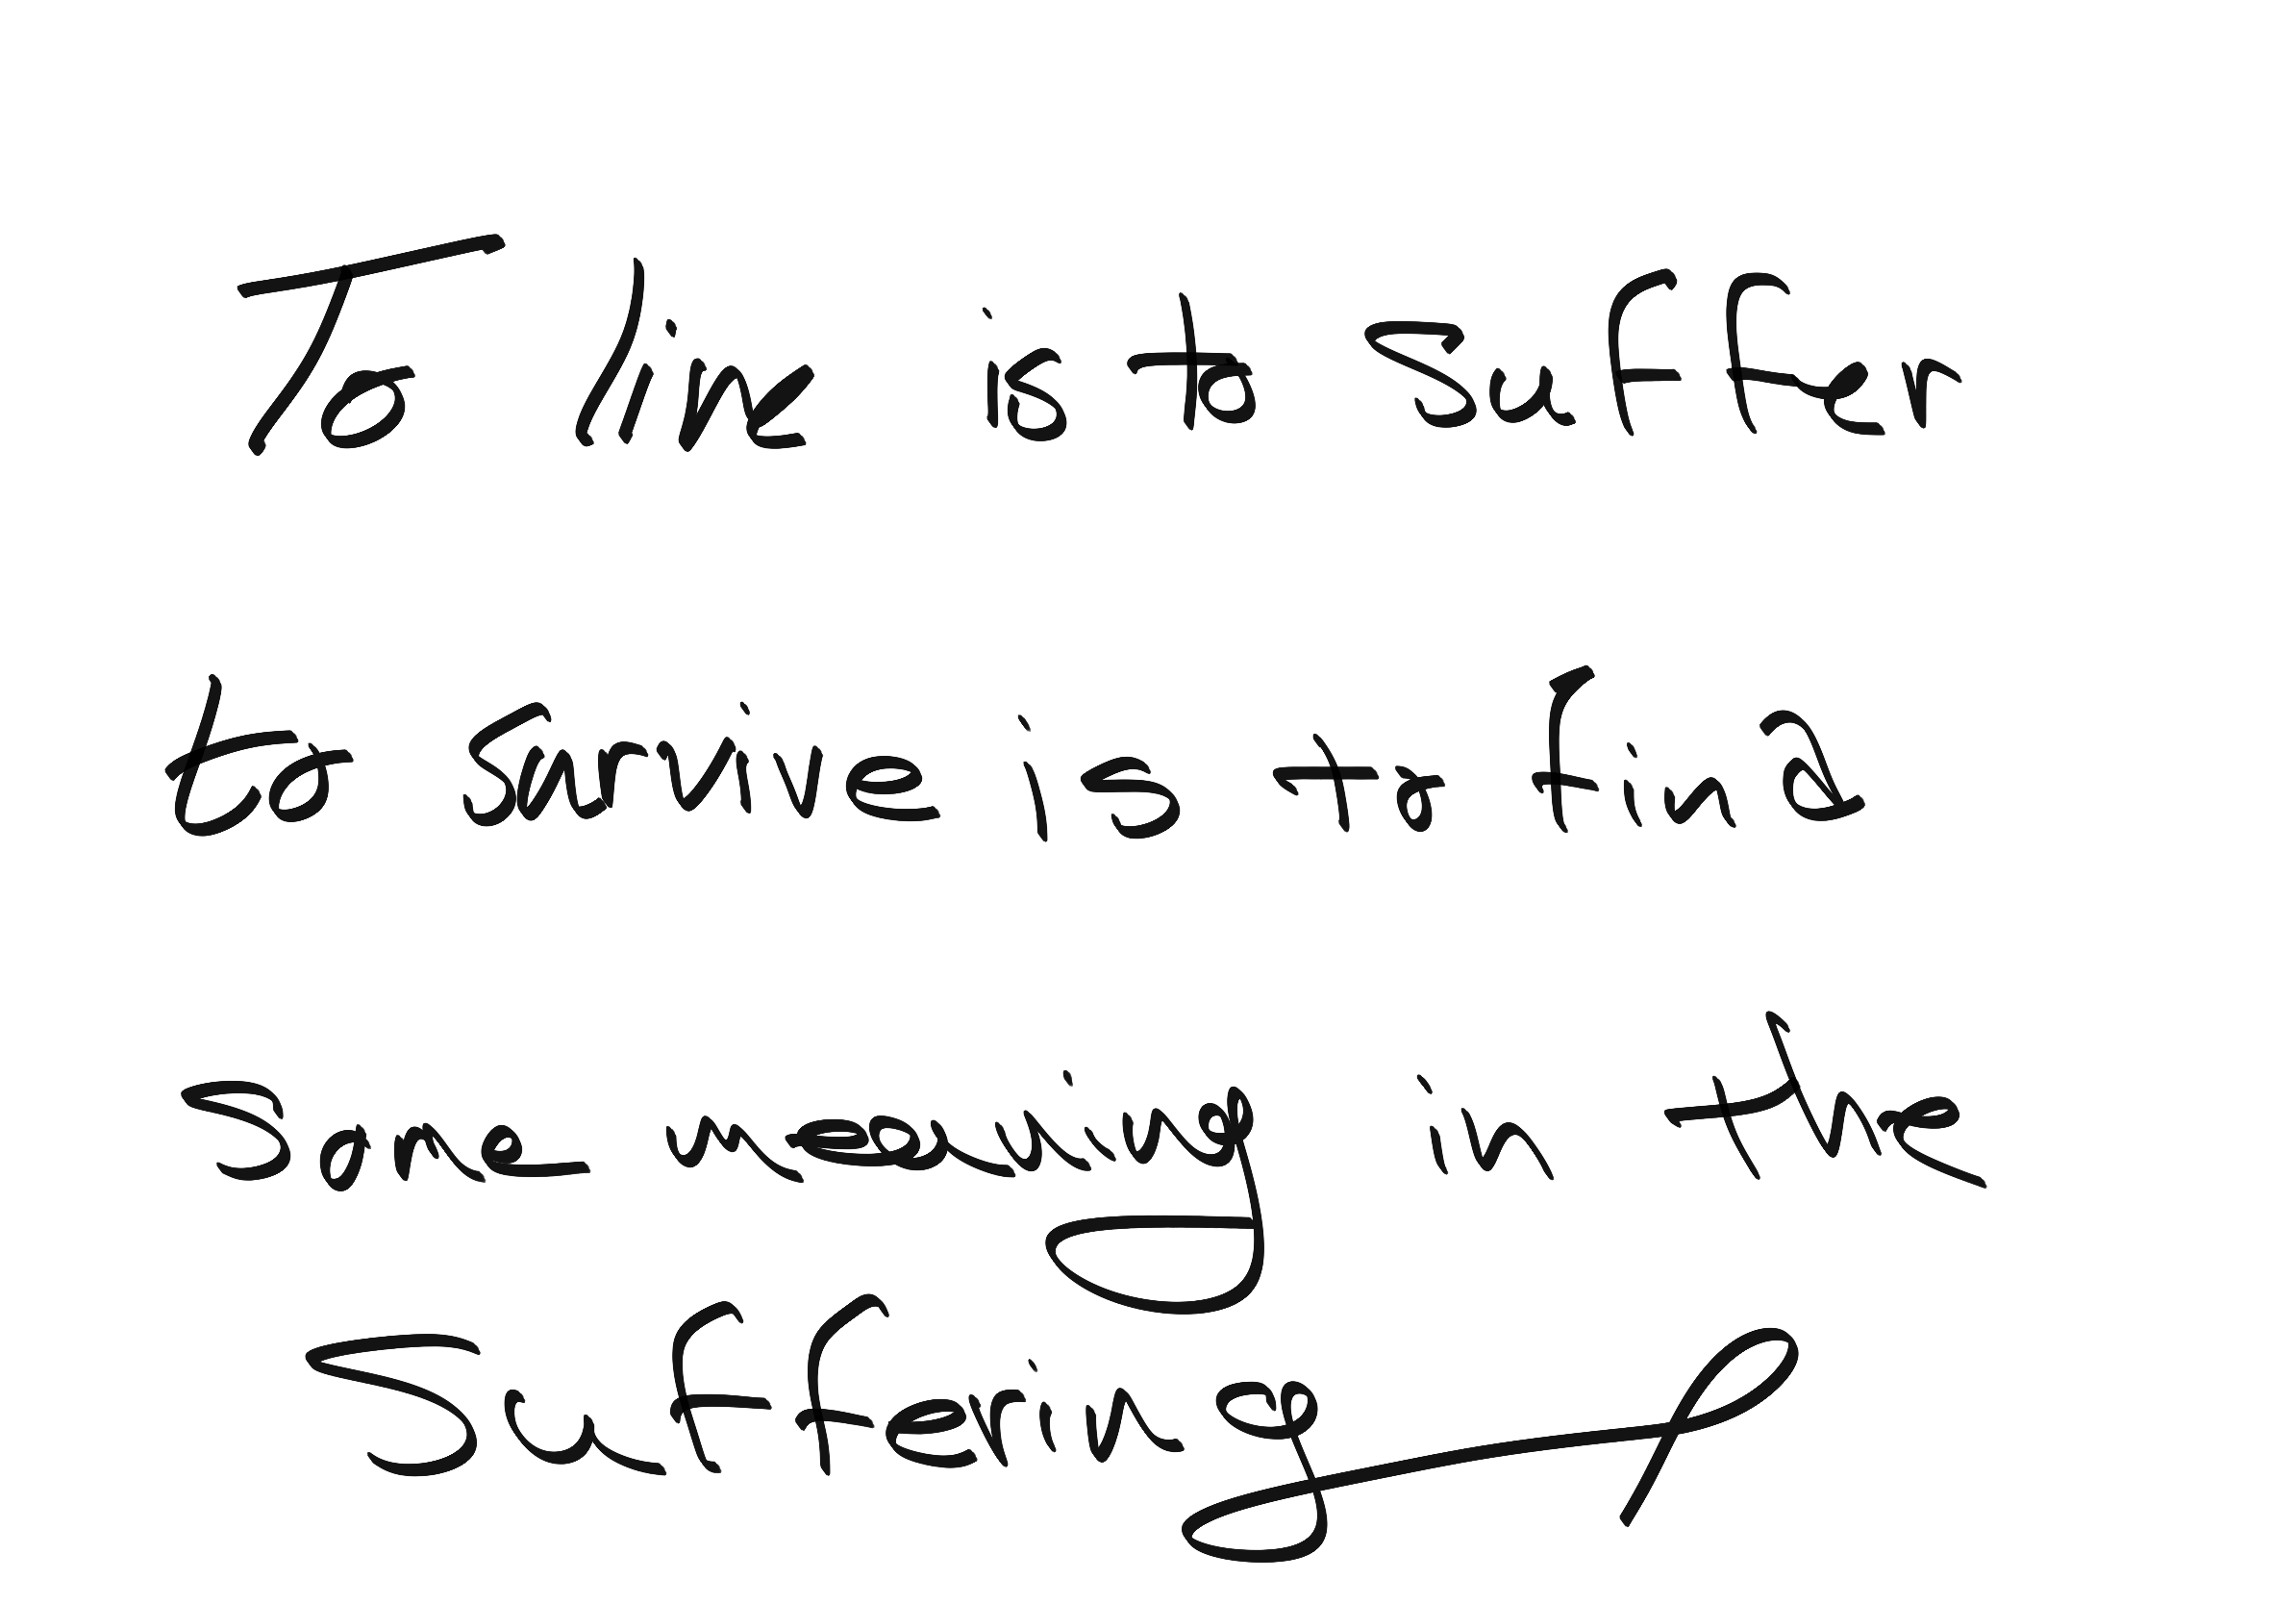 To live is to suffer
to survive is to find
Some meaning in the
Suffering